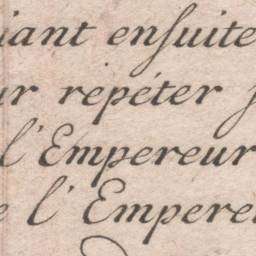 iant ensuite
ur repéter
l'Empereur
e l'Empere